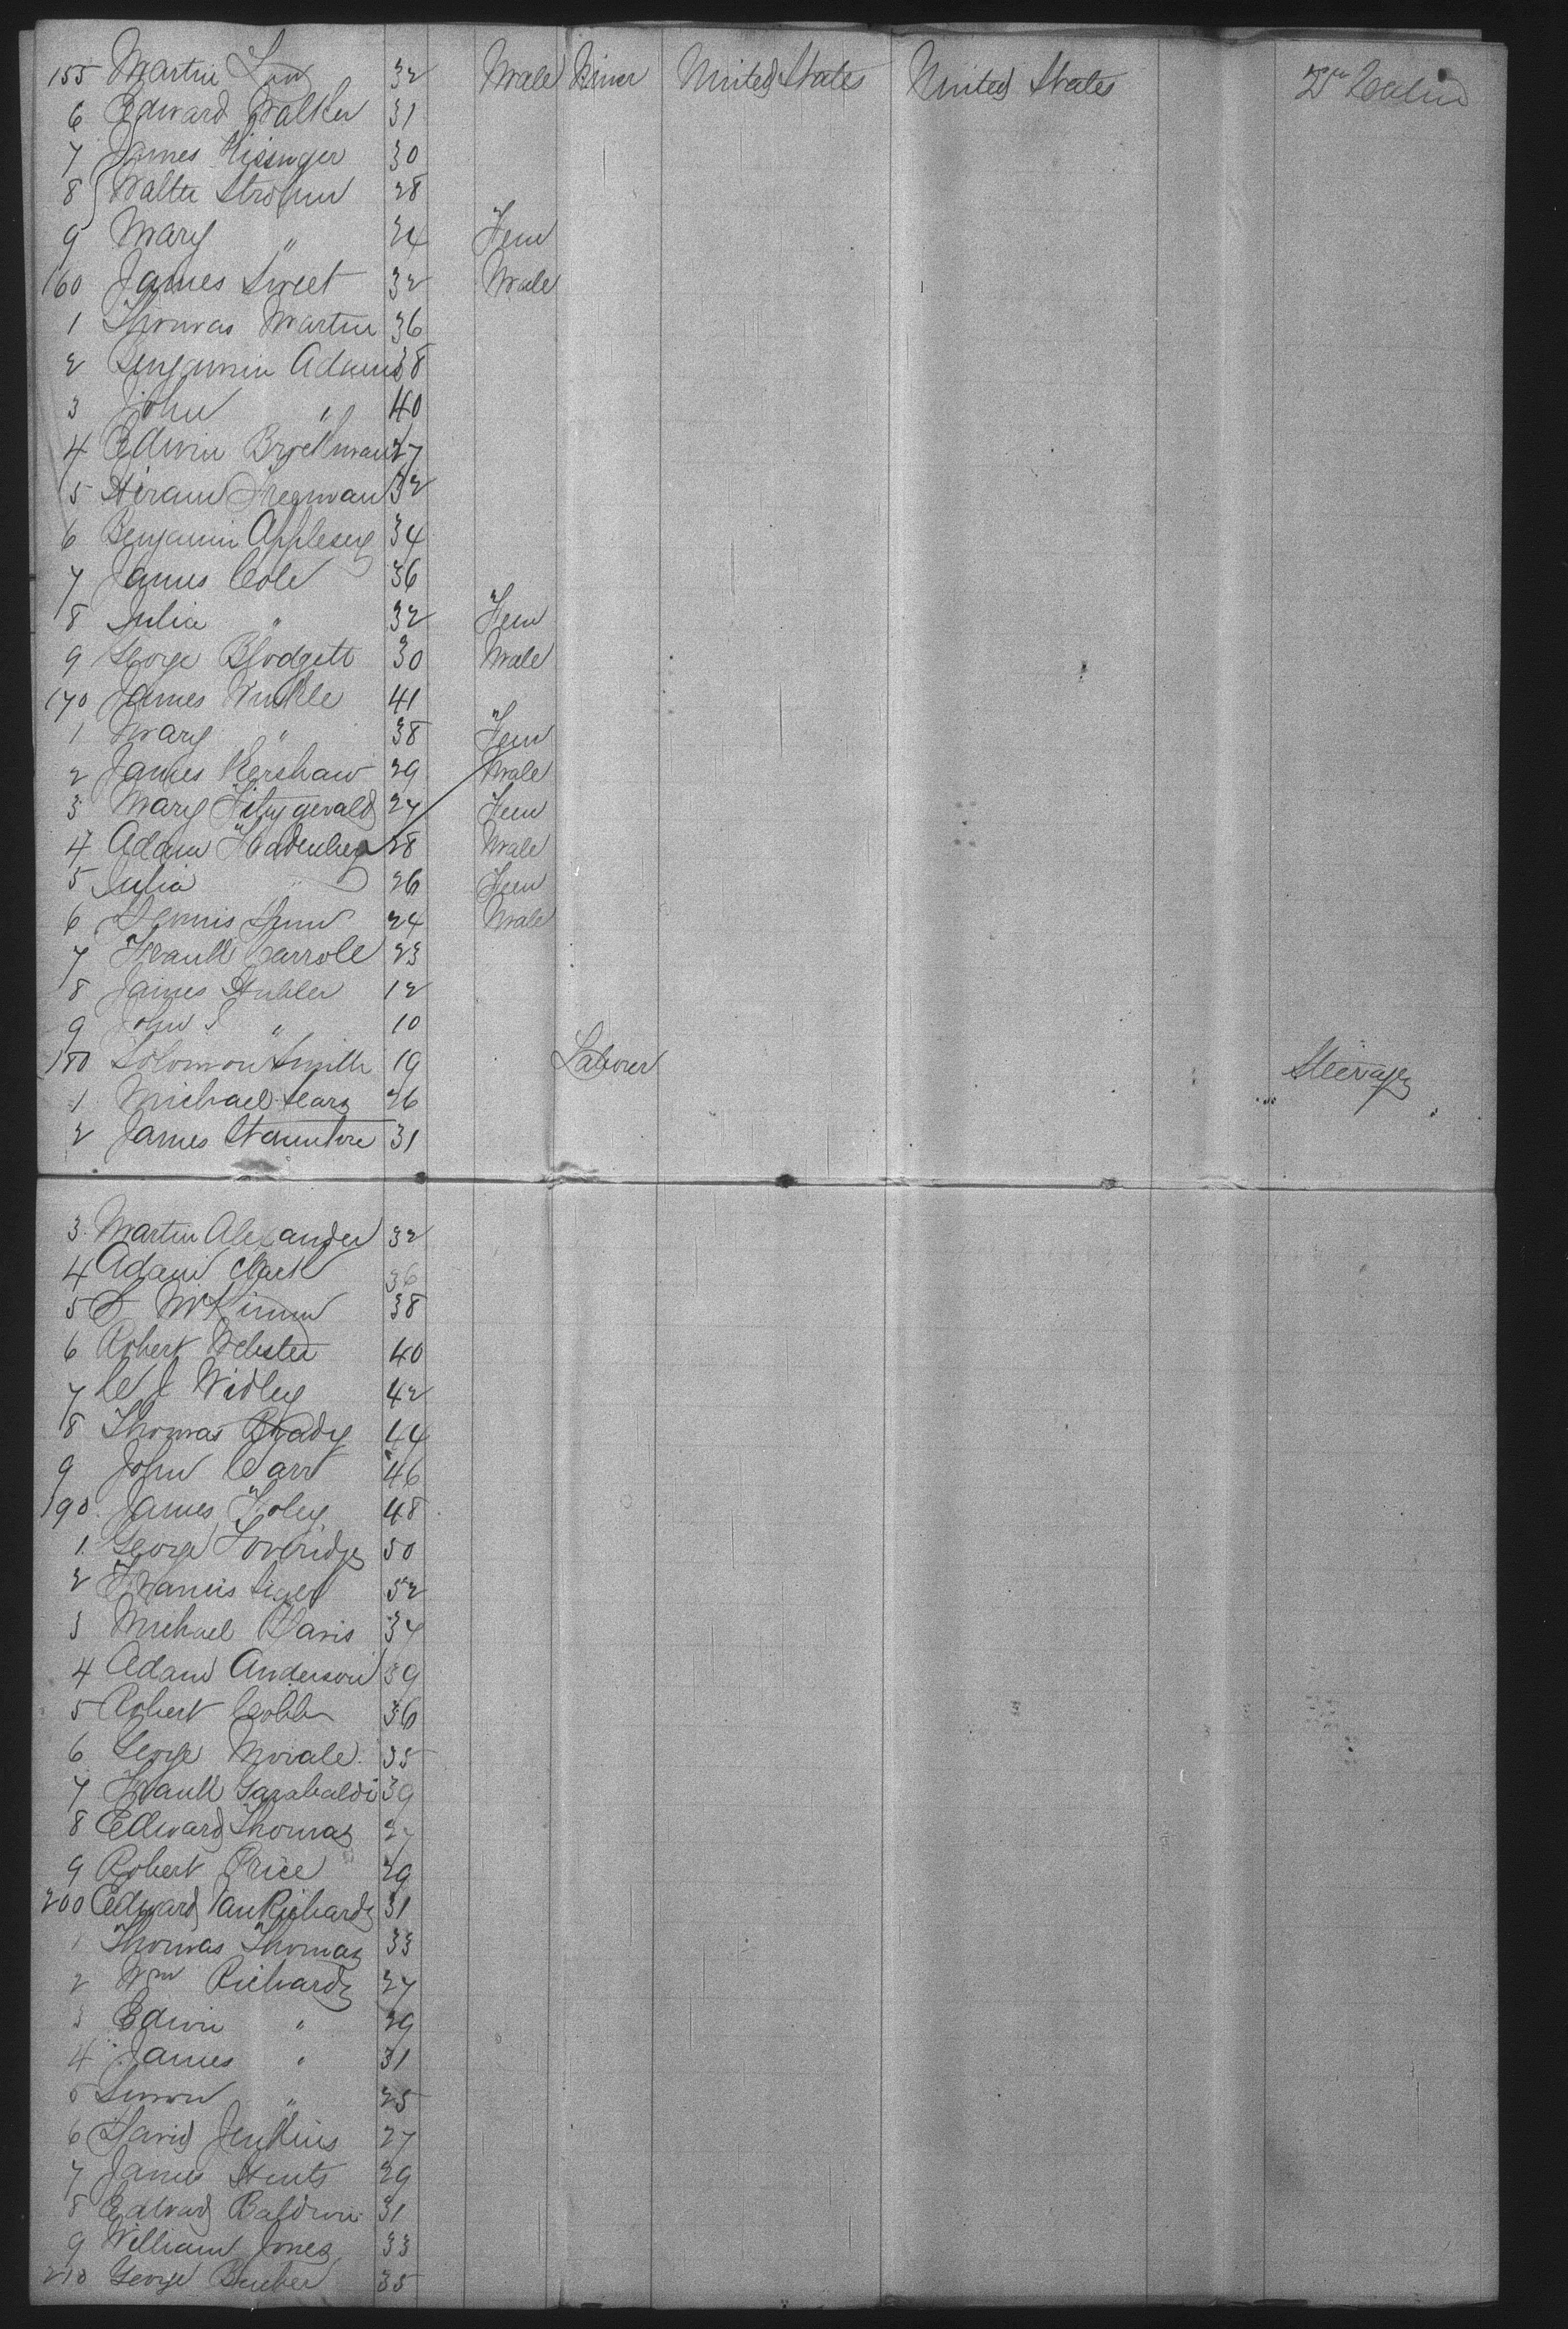 155 Martin 32 Male Miner United States United States 2nd Cabin
6 Edward Walker 31
7 James Kissinger 30
8 Walter Strohm 28
9 Mary " 24 Fem
160 James Sweet 32 Male
1 Thomas Martin 36
2 Benjamin Adams 38
3 John " 40
4 Edwin Brockman 27
5 Hiram 32
6 Benjamin Applesey 34
7 James Cole 36
8 Julia " 32 Fem
9 George Blodgett 30 Male
170 James Winkle 41
1 Mary " 38 Fem
2 James Kershaw 29 Male
3 Mary Fitzgerald 27 Fem
4 Adam 28 Male
5 Julia " 26 Fem
6 Dennis 24 Male
7 Frank Carroll 23
8 James Hubler 12
9 John S " 10
180 Solomon Smith 19 Laborer Steerage
1 Michael Sears 26
2 James Staunton 31
3 Martin Alexander 32
4 Adam Clark 36
5 S McKimm 38
6 Robert Webster 40
7 C J Widley 42
8 Thomas Brady 44
9 John Carr 46
190 James Foley 48
1 George Loveridge 50
2 Francis 52
3 Michael Davis 34
4 Adam Anderson 39
5 Robert Cobb 36
6 George Morale 35
7 Frank Garabaldi 39
8 Edward Thomas 27
9 Robert Price 29
200 Edward VanRichards 31
1 Thomas Thomas 33
2 Wm Richards 27
3 Edwin " 29
4 James " 31
5 Simon " 25
6 David Jenkins 27
7 James 29
8 Edward Baldwin 31
9 William Jones 33
210 George 35